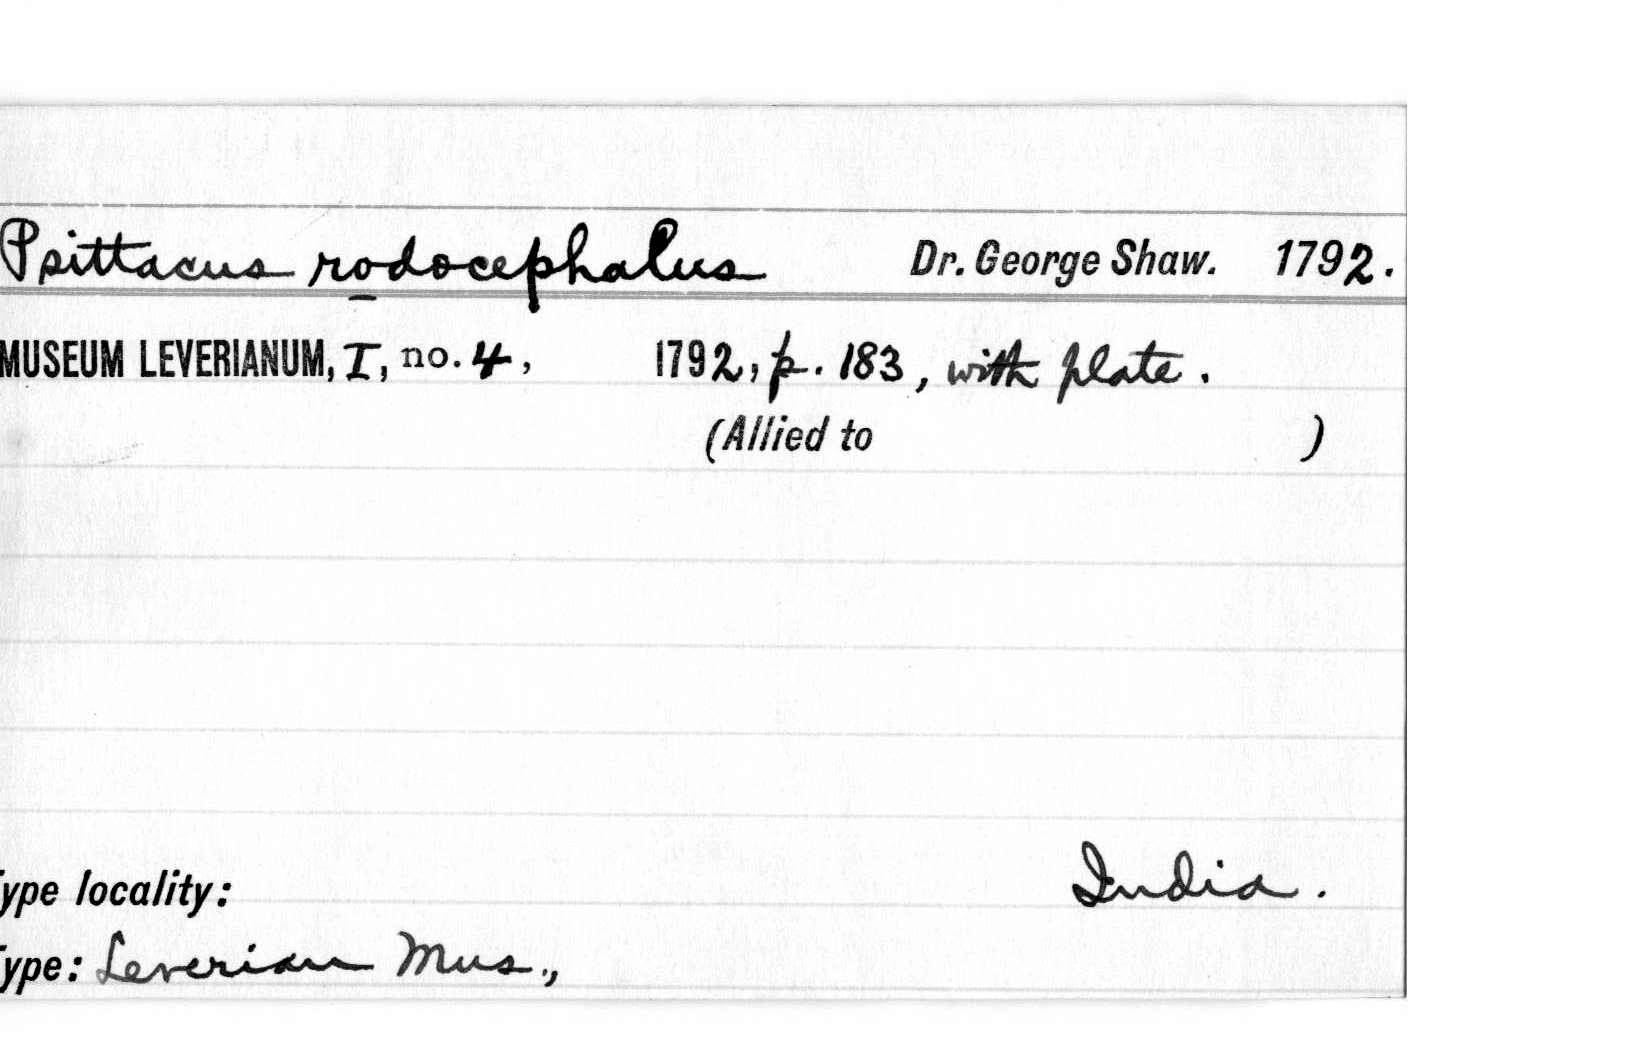 Psittacus rodocephalus Dr. George Shaw. 1792.
MUSEUM LEVERIANUM, I, no. 4, 1792, p. 183, with plate.
(Allied to )
ype locality: India.
ype: Leverian Mus.,